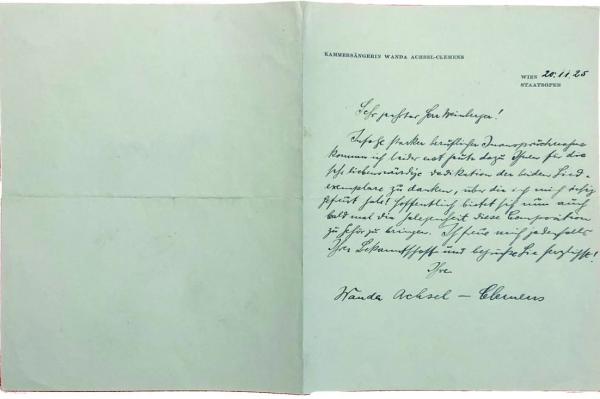 KAMMERSÄNGERIN WANDA ACHSEL-CLEMENS
WIEN 20.11.25
STAATSOPER
Sehr geehrter Herr Weinberger!
Infolge starker beruflicher Inanspruchnahme
komme ich leider erst heute dazu Ihnen für die
sehr liebenswürdige Dedikation der beiden Lied-
exemplare zu danken, über die ich mich sehr
gefreut habe! Hoffentlich bietet sich nun auch
bald mal die Gelegenheit diese Composition
zu Gehör zu bringen. Ich freue mich jedenfalls
Ihrer Bekanntschaft und begrüße Sie herzlichst!
Ihre
Wanda Achsel – Clemens